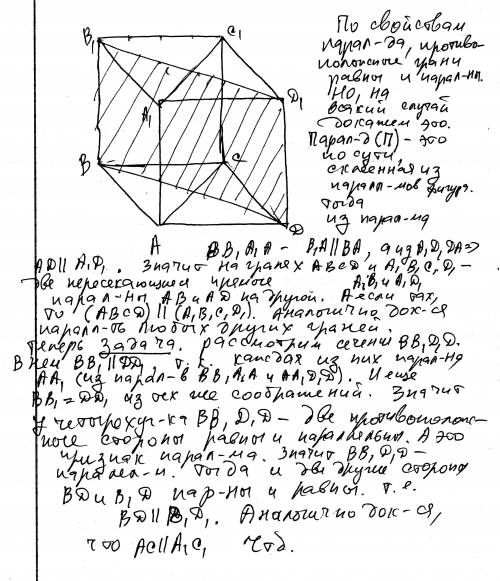 B₁
C₁
A₁
D₁
B
C
A
D
По свойствам
парал-да, противо-
положные грани
равны и парал-ны.
Но, на
всякий случай
докажем это.
Парал-д (П) - это
по сути,
склеенная из
паралл-мов фигура.
Тогда
из парал-ма
BB₁A₁A - B₁A₁ || BA, а из A₁D₁DA ⇒
AD || A₁D₁. Значит на гранях ABCD и A₁B₁C₁D₁ -
две пересекающиеся прямые A₁B₁ и A₁D₁
парал-ны AB и AD на другой. А если так,
то (ABCD) || (A₁B₁C₁D₁). Аналогично док-ся
паралл-ть любых других граней.
Теперь задача. Рассмотрим сечение BB₁D₁D.
В нем BB₁ || DD₁, т.к. каждая из них парал-на
AA₁ (из парал-в BB₁A₁A и AA₁D₁D). И еще
BB₁ = DD₁ из тех же соображений. Значит
у четырехуг-ка BB₁D₁D - две противополож-
ные стороны равны и параллельны. А это
признак парал-ма. Значит BB₁D₁D -
паралел-м. Тогда и две другие стороны
BD и B₁D пар-ны и равны. т.е.
BD || B₁D₁. Аналогично док-ся,
что AC || A₁C₁ Чтд.